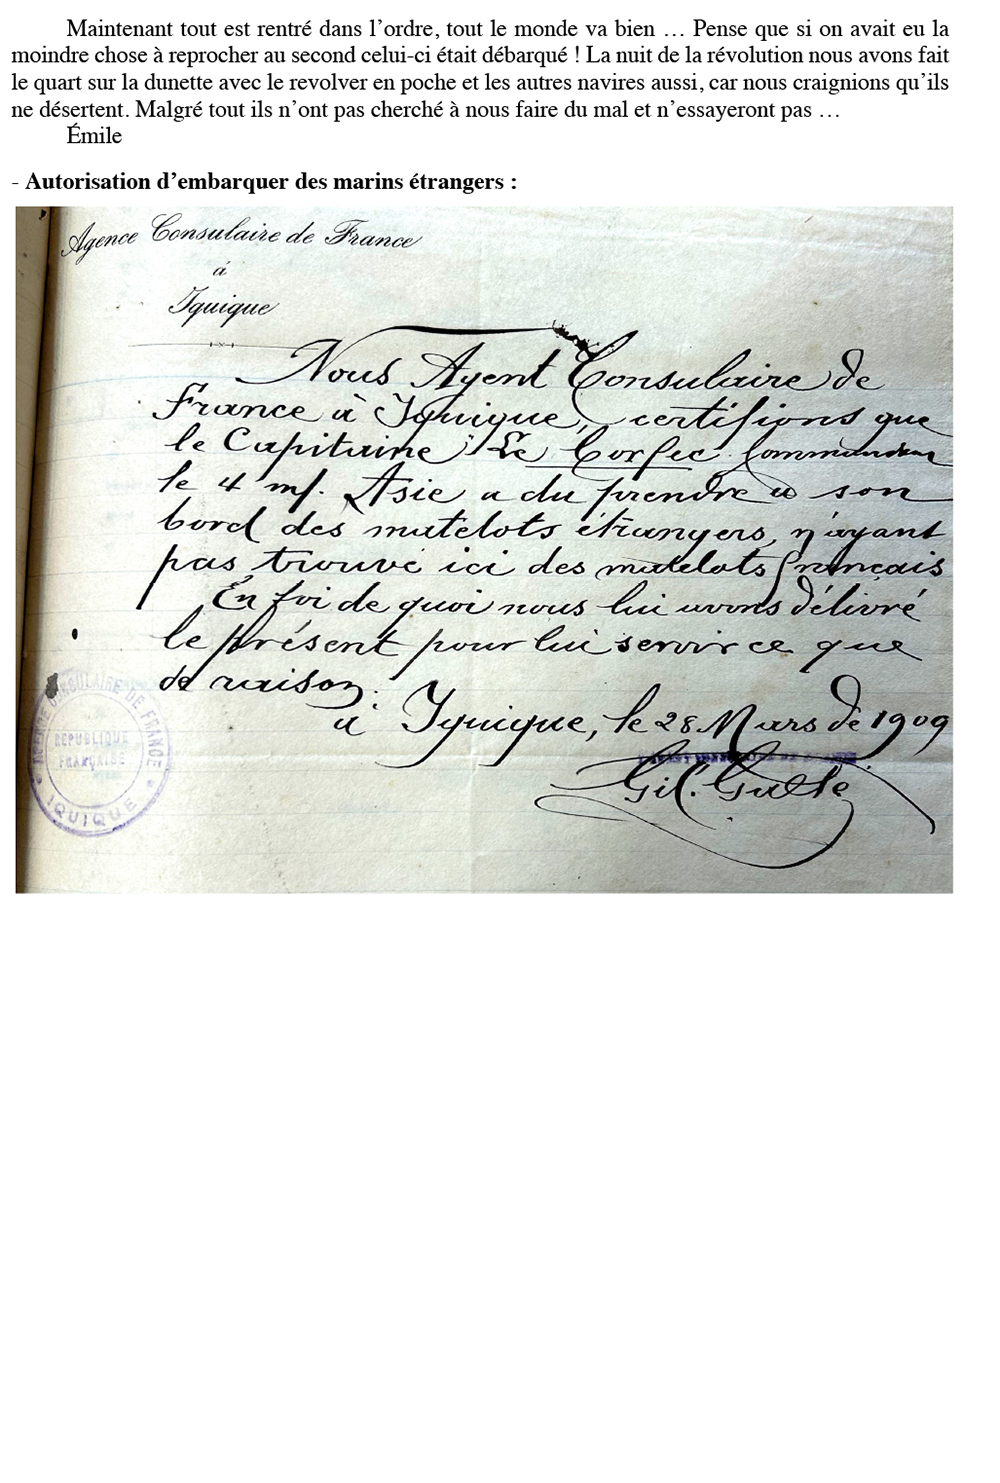 Maintenant tout est rentré dans l’ordre, tout le monde va bien … Pense que si on avait eu la
moindre chose à reprocher au second celui-ci était débarqué ! La nuit de la révolution nous avons fait
le quart sur la dunette avec le revolver en poche et les autres navires aussi, car nous craignions qu’ils
ne désertent. Malgré tout ils n’ont pas cherché à nous faire du mal et n’essayeront pas …
Émile
- Autorisation d’embarquer des marins étrangers :
Agence Consulaire de France
à
Iquique
Nous Agent Consulaire de
France à Iquique, certifions que
le Capitaine Le Corfec Commandant
le 4 m/. Asie a du prendre à son
bord des matelots étrangers, n'ayant
pas trouvé ici des matelots français
En foi de quoi nous lui avons délivré
le présent pour lui servir ce que
de raison.
à Iquique, le 28 Mars de 1909
AGENCE CONSULAIRE DE FRANCE
RÉPUBLIQUE
FRANÇAISE
IQUIQUE